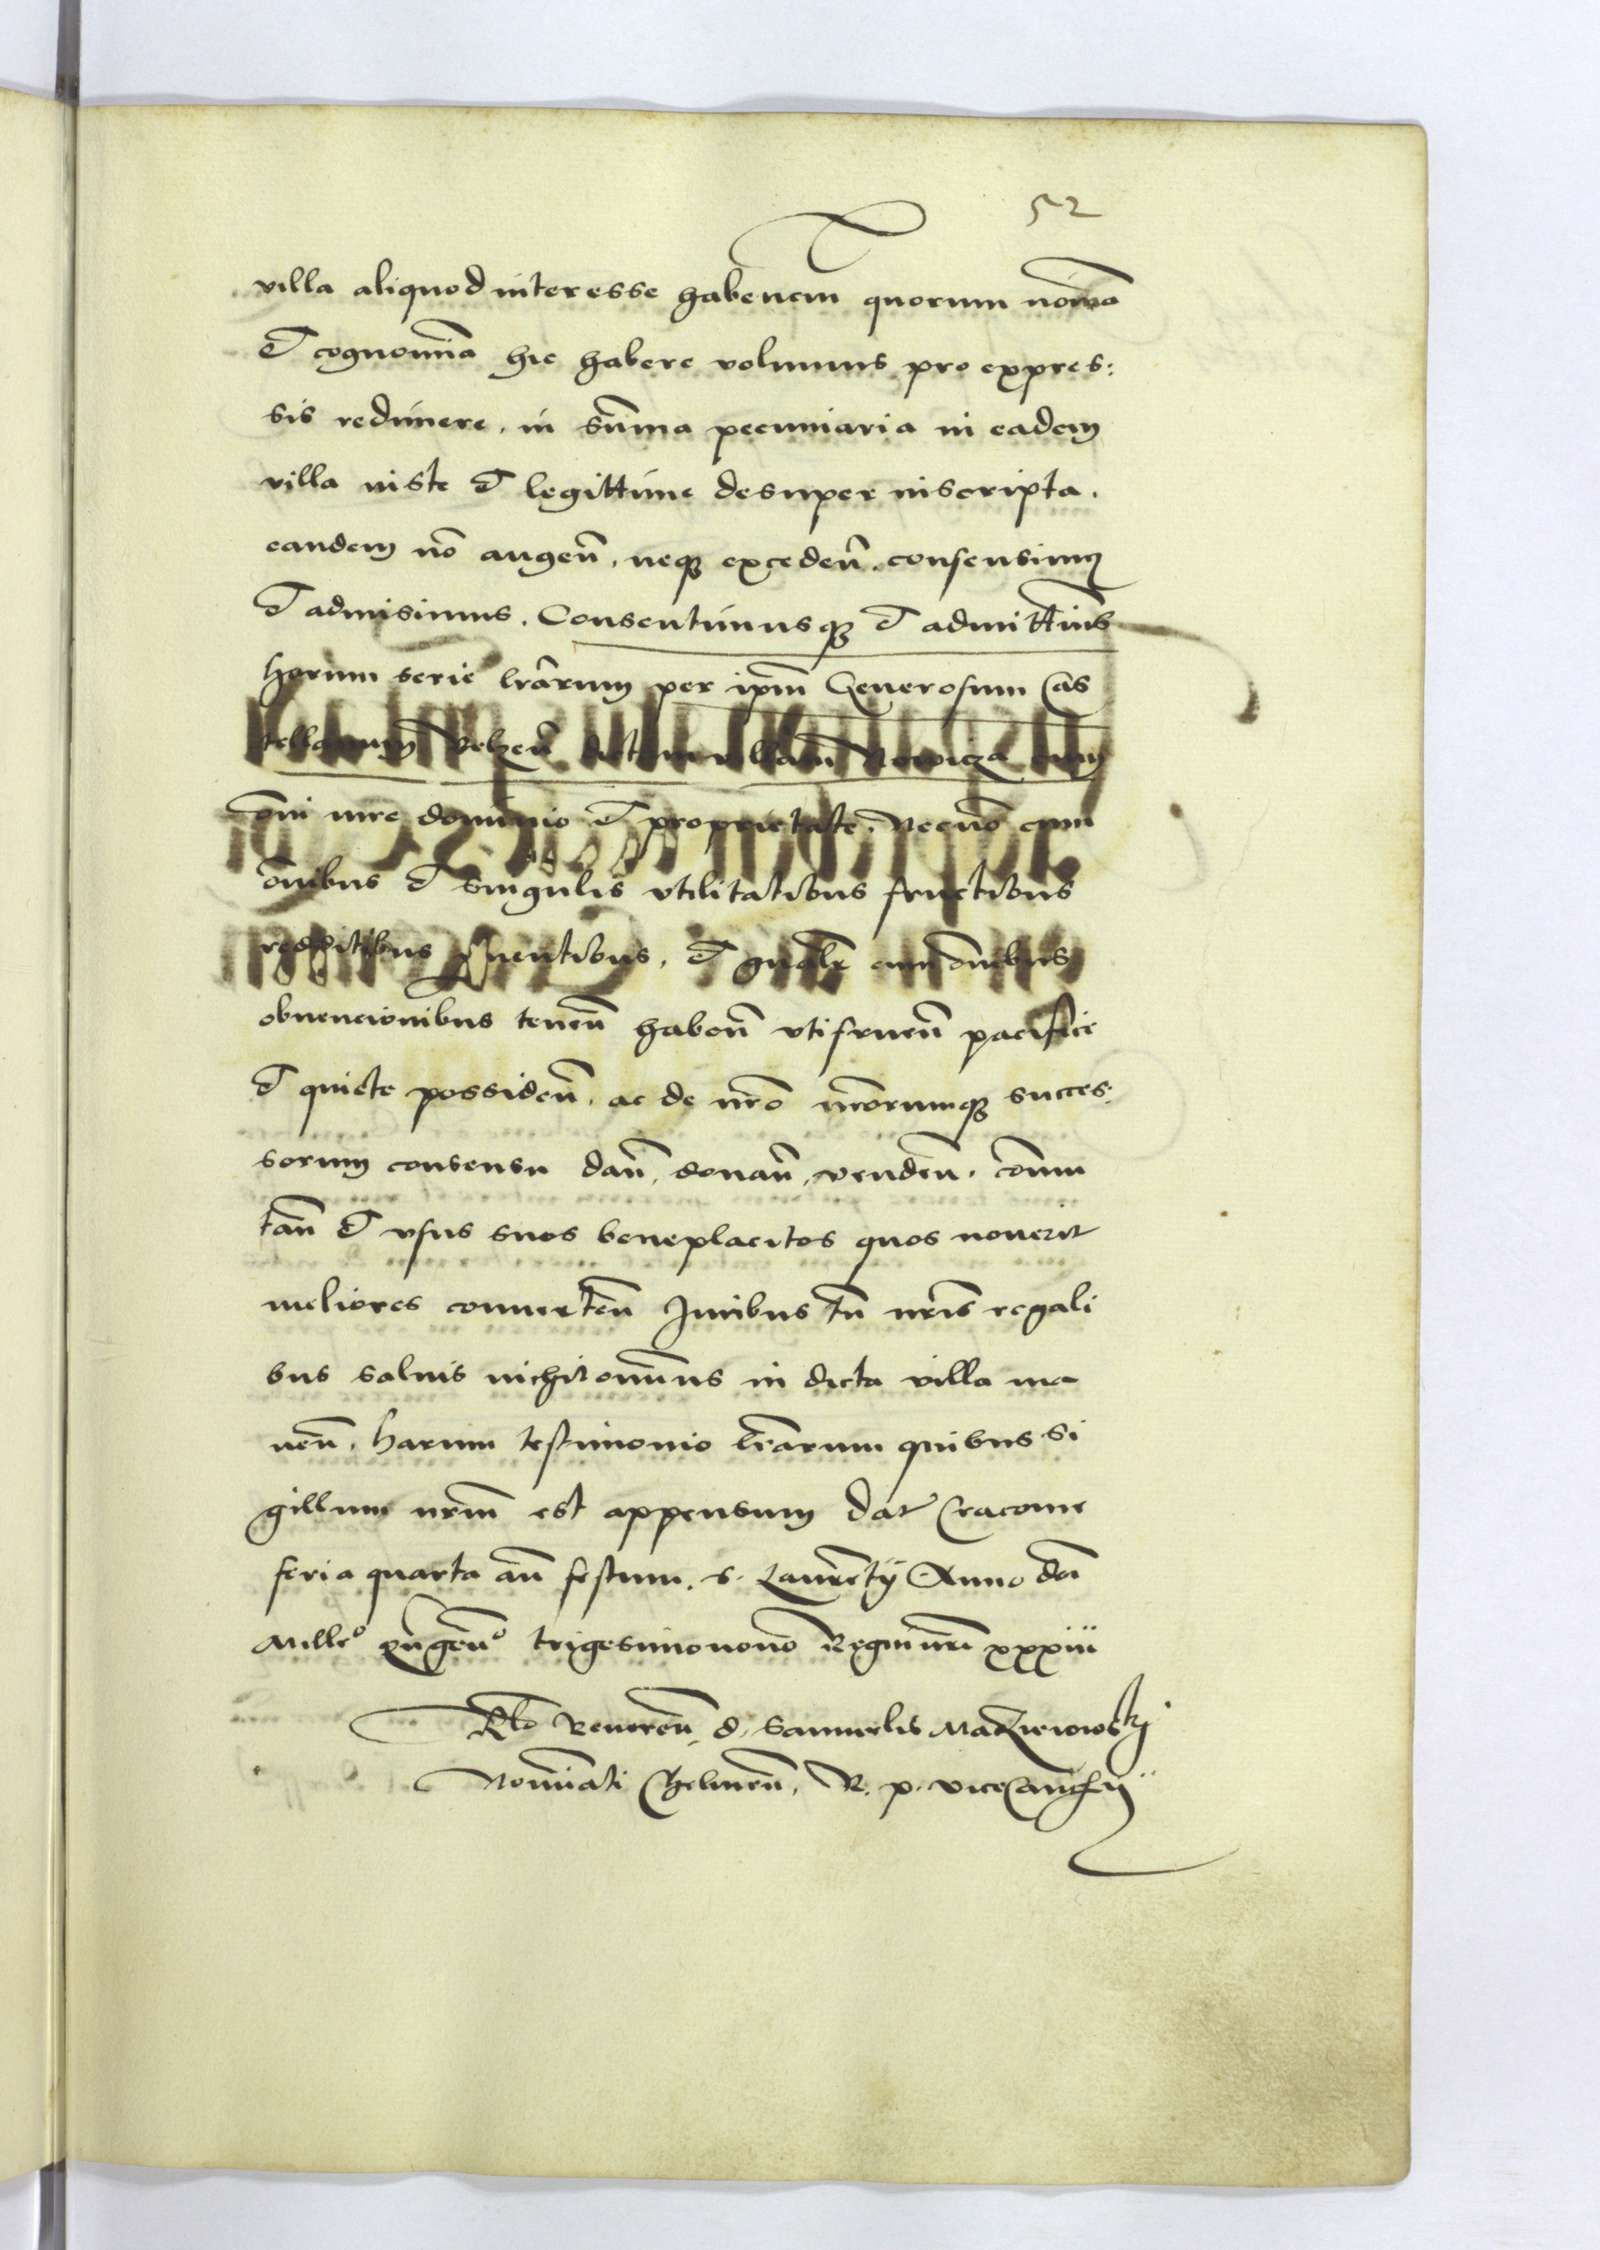 52
villa aliquod interesse habenem quorum noīa
et cognomīa hic habere volumus pro expres:
sis redimere, in sūma pecuniaria in eadem
villa iuste et legittime desuper inscripta.
eandem nō augeñ, neqȝ excedeñ. consensimus
et admisimus. Consentimusqȝ et admittimus
harum serie lrārum per ipm̄ Generosum Cas
tellanum Belzeñ dictam villam Nowicza cum
omī iure dominio et proprietate. Necnō cum
omībus et singulis vtilitatibus fructibus
redditibus prouentibus, et gnālr cum omībus
obuencionibus teneñ habeñ vtifrueñ pacifice
et quiete possideñ. ac de nr̄o nr̄orumqȝ succes:
sorum consensu dañ, donañ, vendeñ. cōmu
tañ et vsus suos beneplacitos quos nouerit
meliores conuerteñ Juribus tn̄ nr̄is regali
bus saluis nichilominus in dicta villa ma
neñ. harum testimonio lrārum quibus si
gillum nr̄m est appensum Dat Cracouie
feria quarta añ festum. S. Laurētij Anno dnī
Milleo quingeno trigesimonono Regni nrī xxxiii
Rlo Reuereñ. d. Samuelis Maczieiowskj
Nominati Chelmeñ. R. p. viceCancłrij